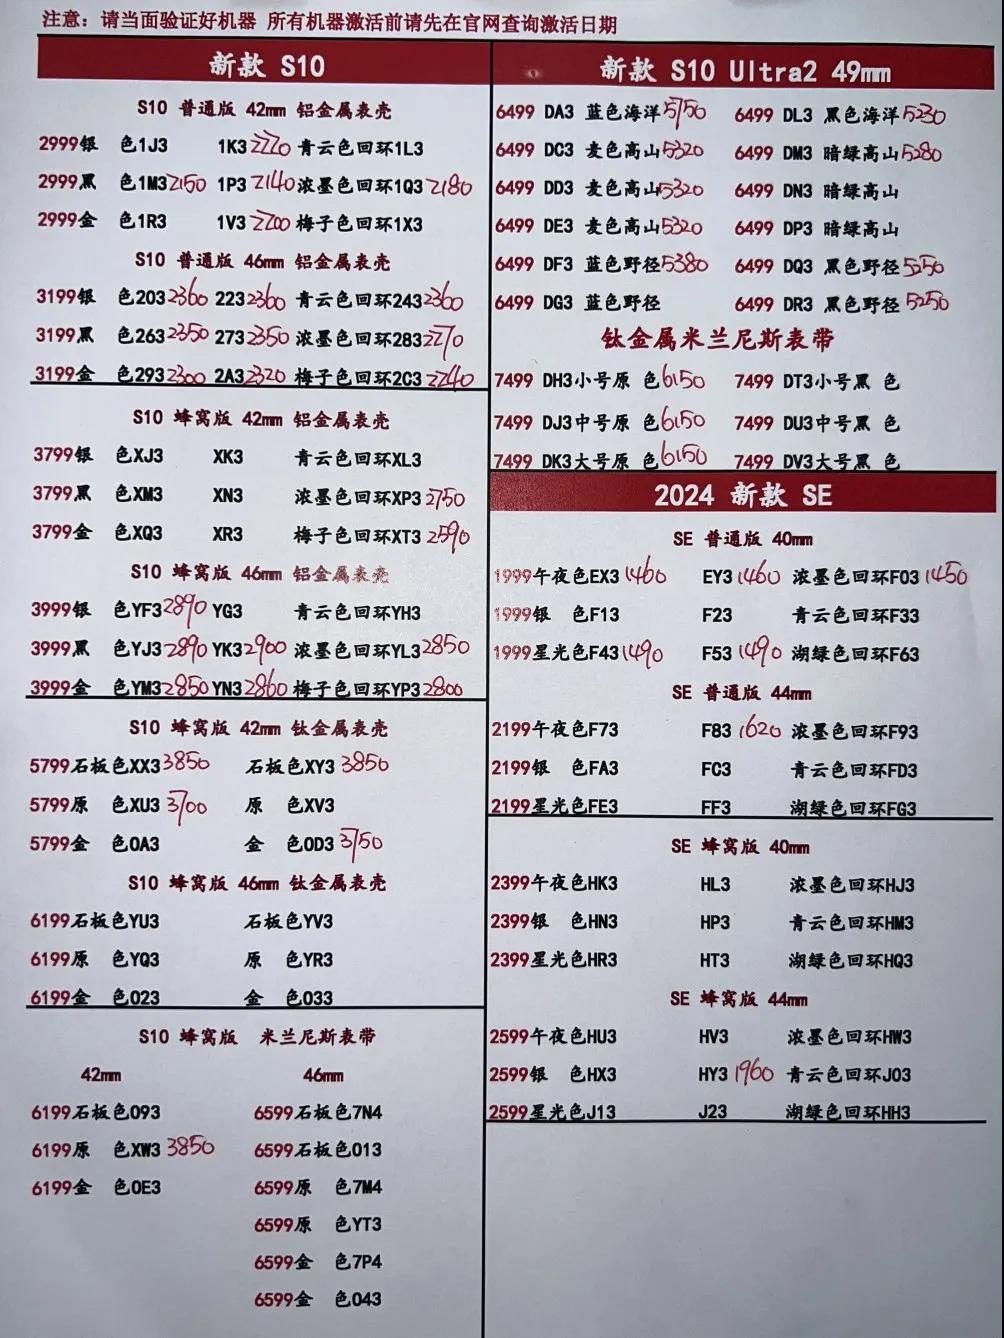 注意：请当面验证好机器 所有机器激活前请先在官网查询激活日期
新款 S10
S10 普通版 42mm 铝金属表壳
2999银 色1J3 1K3 2220 青云色回环1L3
2999黑 色1M3 2150 1P3 2140 浓墨色回环1Q3 2180
2999金 色1R3 1V3 2200 梅子色回环1X3
S10 普通版 46mm 铝金属表壳
3199银 色203 2360 223 2360 青云色回环243 2360
3199黑 色263 2350 273 2350 浓墨色回环283 2270
3199金 色293 2300 2A3 2320 梅子色回环2C3 2240
S10 蜂窝版 42mm 铝金属表壳
3799银 色XJ3 XK3 青云色回环XL3
3799黑 色XM3 XN3 浓墨色回环XP3 2750
3799金 色XQ3 XR3 梅子色回环XT3 2590
S10 蜂窝版 46mm 铝金属表壳
3999银 色YF3 2890 YG3 青云色回环YH3
3999黑 色YJ3 2890 YK3 2900 浓墨色回环YL3 2850
3999金 色YM3 2850 YN3 2860 梅子色回环YP3 2800
S10 蜂窝版 42mm 钛金属表壳
5799石板色XX3 3850 石板色XY3 3850
5799原 色XU3 3700 原 色XV3
5799金 色0A3 金 色0D3 3750
S10 蜂窝版 46mm 钛金属表壳
6199石板色YU3 石板色YV3
6199原 色YQ3 原 色YR3
6199金 色023 金 色033
S10 蜂窝版 米兰尼斯表带
42mm 46mm
6199石板色093 6599石板色7N4
6199原 色XW3 3850 6599石板色013
6199金 色0E3 6599原 色7M4
6599原 色YT3
6599金 色7P4
6599金 色043
新款 S10 Ultra2 49mm
6499 DA3 蓝色海洋 5150 6499 DL3 黑色海洋 5230
6499 DC3 麦色高山 5320 6499 DM3 暗绿高山 5280
6499 DD3 麦色高山 5320 6499 DN3 暗绿高山
6499 DE3 麦色高山 5320 6499 DP3 暗绿高山
6499 DF3 蓝色野径 5380 6499 DQ3 黑色野径 5250
6499 DG3 蓝色野径 6499 DR3 黑色野径 5250
钛金属米兰尼斯表带
7499 DH3小号原 色 6150 7499 DT3小号黑 色
7499 DJ3中号原 色 6150 7499 DU3中号黑 色
7499 DK3大号原 色 6150 7499 DV3大号黑 色
2024 新款 SE
SE 普通版 40mm
1999午夜色EX3 1460 EY3 1460 浓墨色回环F03 1450
1999银 色F13 F23 青云色回环F33
1999星光色F43 1490 F53 1490 湖绿色回环F63
SE 普通版 44mm
2199午夜色F73 F83 1620 浓墨色回环F93
2199银 色FA3 FC3 青云色回环FD3
2199星光色FE3 FF3 湖绿色回环FG3
SE 蜂窝版 40mm
2399午夜色HK3 HL3 浓墨色回环HJ3
2399银 色HN3 HP3 青云色回环HM3
2399星光色HR3 HT3 湖绿色回环HQ3
SE 蜂窝版 44mm
2599午夜色HU3 HV3 浓墨色回环HW3
2599银 色HX3 HY3 1960 青云色回环J03
2599星光色J13 J23 湖绿色回环HH3